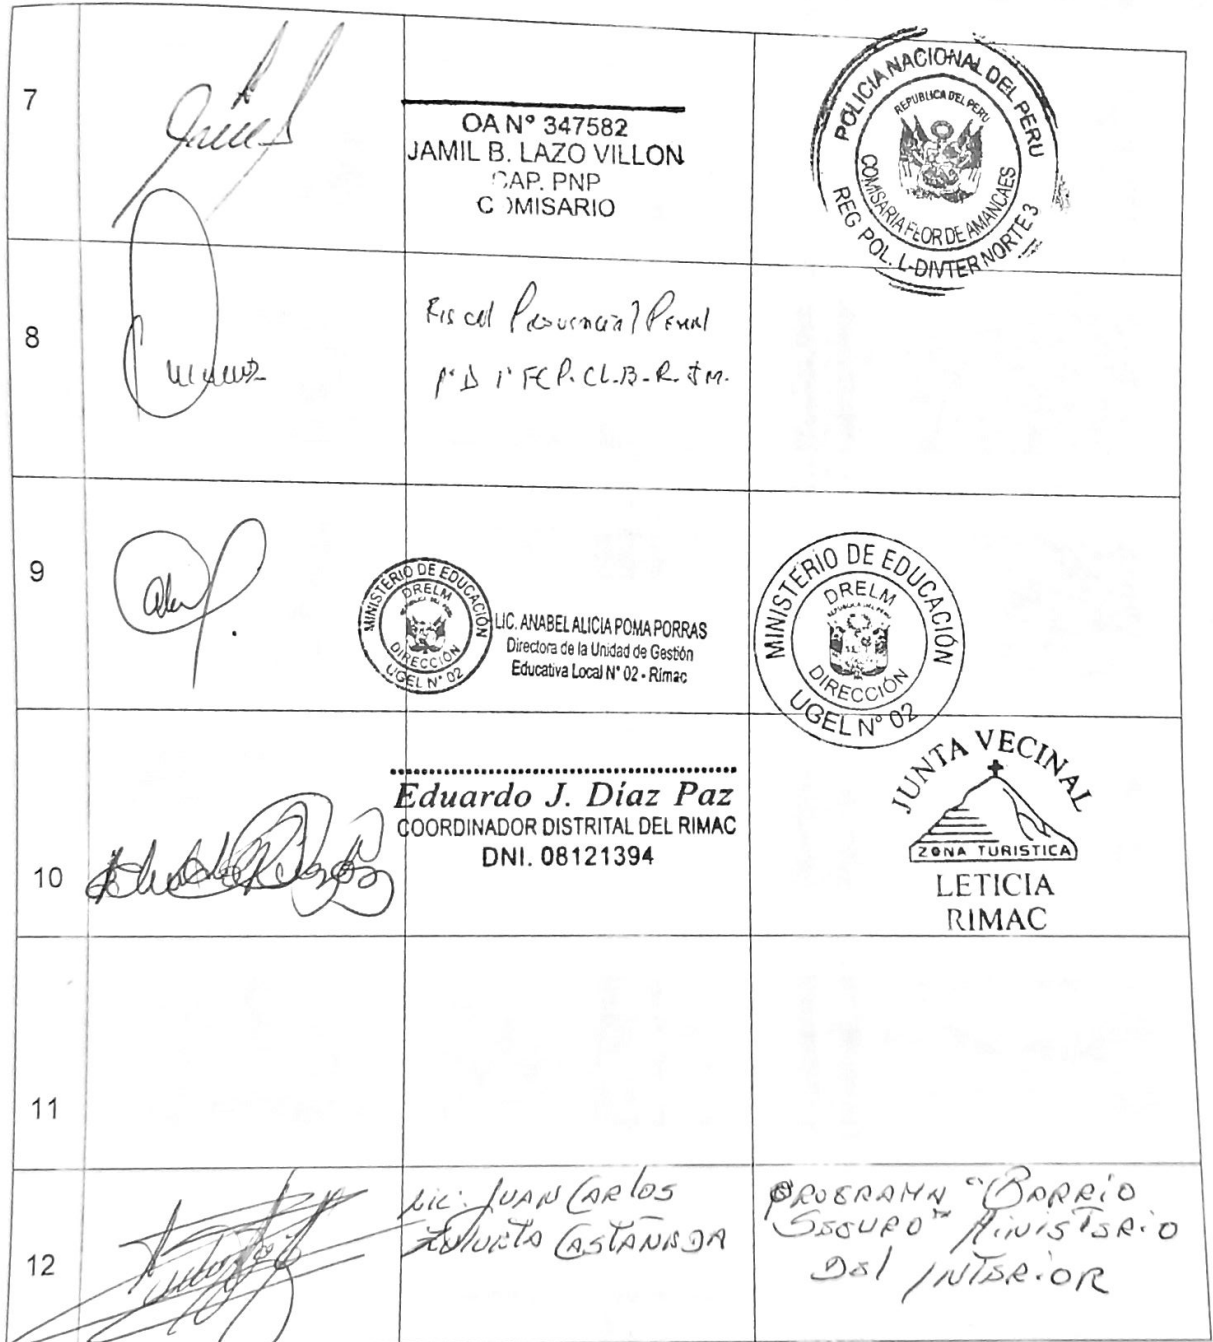 7
OA N° 347582
JAMIL B. LAZO VILLON
CAP. PNP
C MISARIO
POLICIA NACIONAL DEL PERU
REPUBLICA DEL PERU
COMISARIA FLOR DE AMANCAES
REG POL. L-DIVTER NORTE 3
8
Fiscal Provincial Penal
FCP.
9
MINISTERIO DE EDUCACIÓN
DRELM
DIRECCIÓN
UGEL N° 02
LIC. ANABEL ALICIA POMA PORRAS
Directora de la Unidad de Gestión
Educativa Local N° 02 - Rimac
MINISTERIO DE EDUCACIÓN
DRELM
REPUBLICA DEL PERU
DIRECCIÓN
UGEL N° 02
10
Eduardo J. Díaz Paz
COORDINADOR DISTRITAL DEL RIMAC
DNI. 08121394
JUNTA VECINAL
ZONA TURISTICA
LETICIA
RIMAC
11
12
Lic. JUAN CARLOS
CASTAÑEDA
PROGRAMA "BARRIO
SEGURO" MINISTERIO
DEL INTERIOR